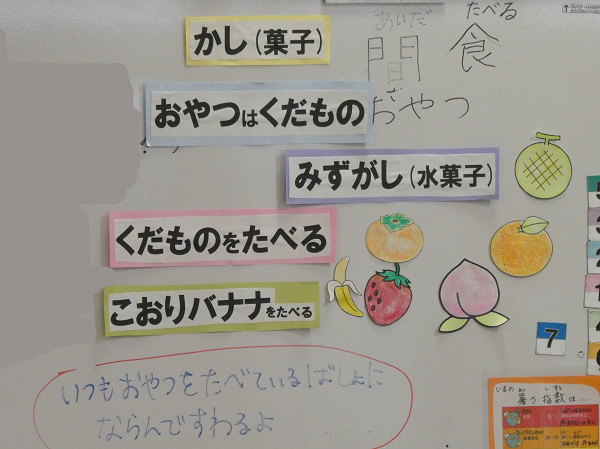 かし(菓子)
あいだ
たべる
間食
おやつ
おやつはくだもの
みずがし(水菓子)
くだものをたべる
こおりバナナをたべる
7
いつもおやつをたべているばしょに
ならんですわるよ
いまの
暑さ指数は